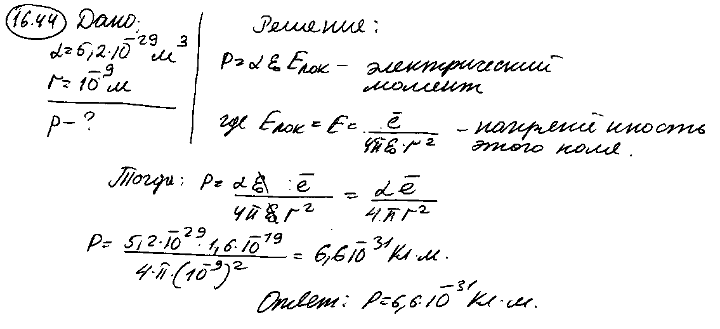 16.44 Дано:
α=5,2·10⁻²⁹ м³
r=10⁻⁹ м
p-?
Решение:
P=α ε₀ Eлок - электрический
момент
где Eлок = E = e̅ / 4πε₀·r² - напряженность
этого поля.
Тогда: P= α ε₀ · e̅ / 4πε₀ r² = α e̅ / 4·π r²
P= 5,2·10⁻²⁹·1,6·10⁻¹⁹ / 4·π·(10⁻⁹)² = 6,6·10⁻³¹ Кл·м.
Ответ: P=6,6·10⁻³¹ Кл·м.